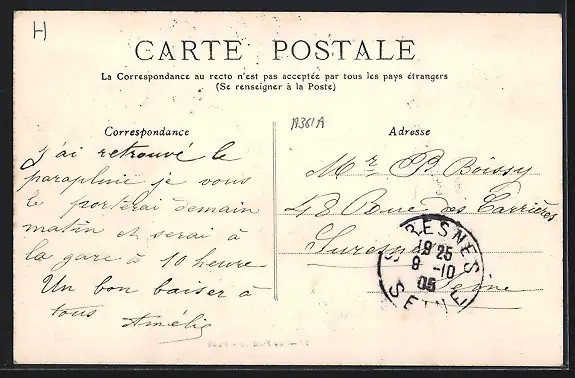 H
CARTE POSTALE
La Correspondance au recto n'est pas acceptée par tous les pays étrangers
(Se renseigner à la Poste)
A361A
Correspondance
J'ai retrouvé le
parapluie je vous
le porterai demain
matin et serai à
la gare à 10 heure
Un bon baiser à
tous Amélie
Adresse
Mr B. Boissy
48 Rue des Carrières
Suresnes
Seine
SURESNES
1925
9 -10
05
SEINE